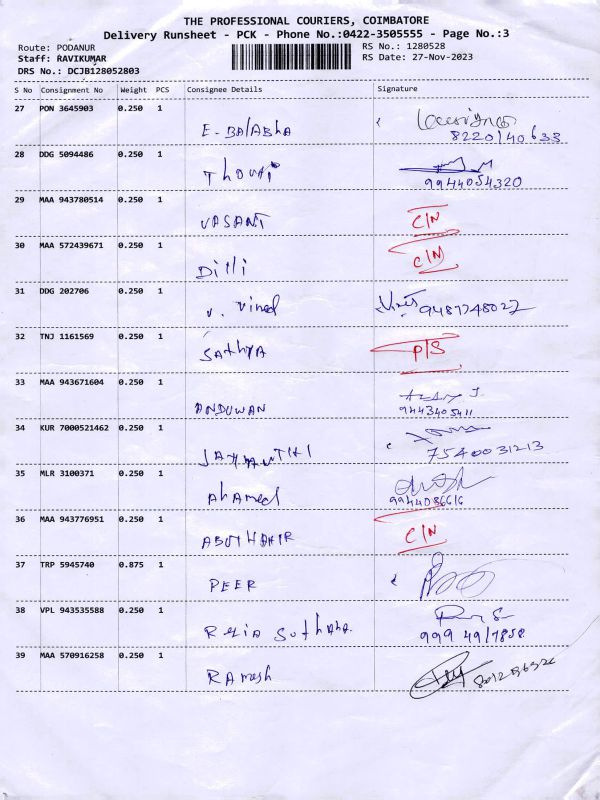 THE PROFESSIONAL COURIERS, COIMBATORE
Delivery Runsheet - PCK - Phone No.:0422-3505555 - Page No.:3
Route: PODANUR
RS No.: 1280528
Staff: RAVIKUMAR
RS Date: 27-Nov-2023
DRS No.: DCJB128052803
S No Consignment No Weight PCS Consignee Details Signature
27 PON 3645903 0.250 1
E-BalABha
8220140633
28 DDG 5094486 0.250 1
9944054320
29 MAA 943780514 0.250 1
VASANT C/N
30 MAA 572439671 0.250 1
Dilli C/N
31 DDG 202706 0.250 1
V. Vined 9487748027
32 TNJ 1161569 0.250 1
SAthyA P/S
33 MAA 943671604 0.250 1
ANDUWAN
9443405411
34 KUR 7000521462 0.250 1
JAYYANTHI 7540031213
35 MLR 3100371 0.250 1
AhAmed
9944086616
36 MAA 943776951 0.250 1
ABUTHAHIR C/N
37 TRP 5945740 0.875 1
PEER
38 VPL 943535588 0.250 1
999 49/7858
39 MAA 570916258 0.250 1
RAmesh